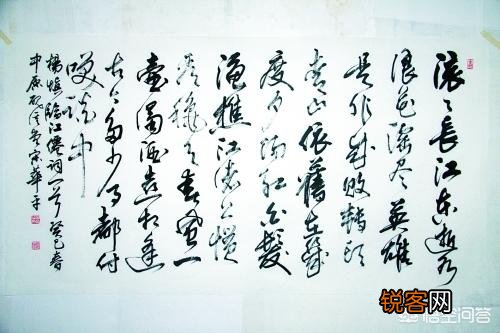 滚々长江东逝水
浪花淘尽英雄
是非成败转头
青山依舊在幾
度夕阳红白髮
渔樵江渚上惯
秋月春风一
壶濁酒喜相逢
古今多少事都付
笑谈中
楊慎臨江僊詞一首 癸巳春
中原宋華平
锐客网
悟空问答